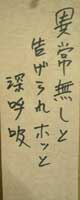 異常無しと
告げられホッと
深呼吸